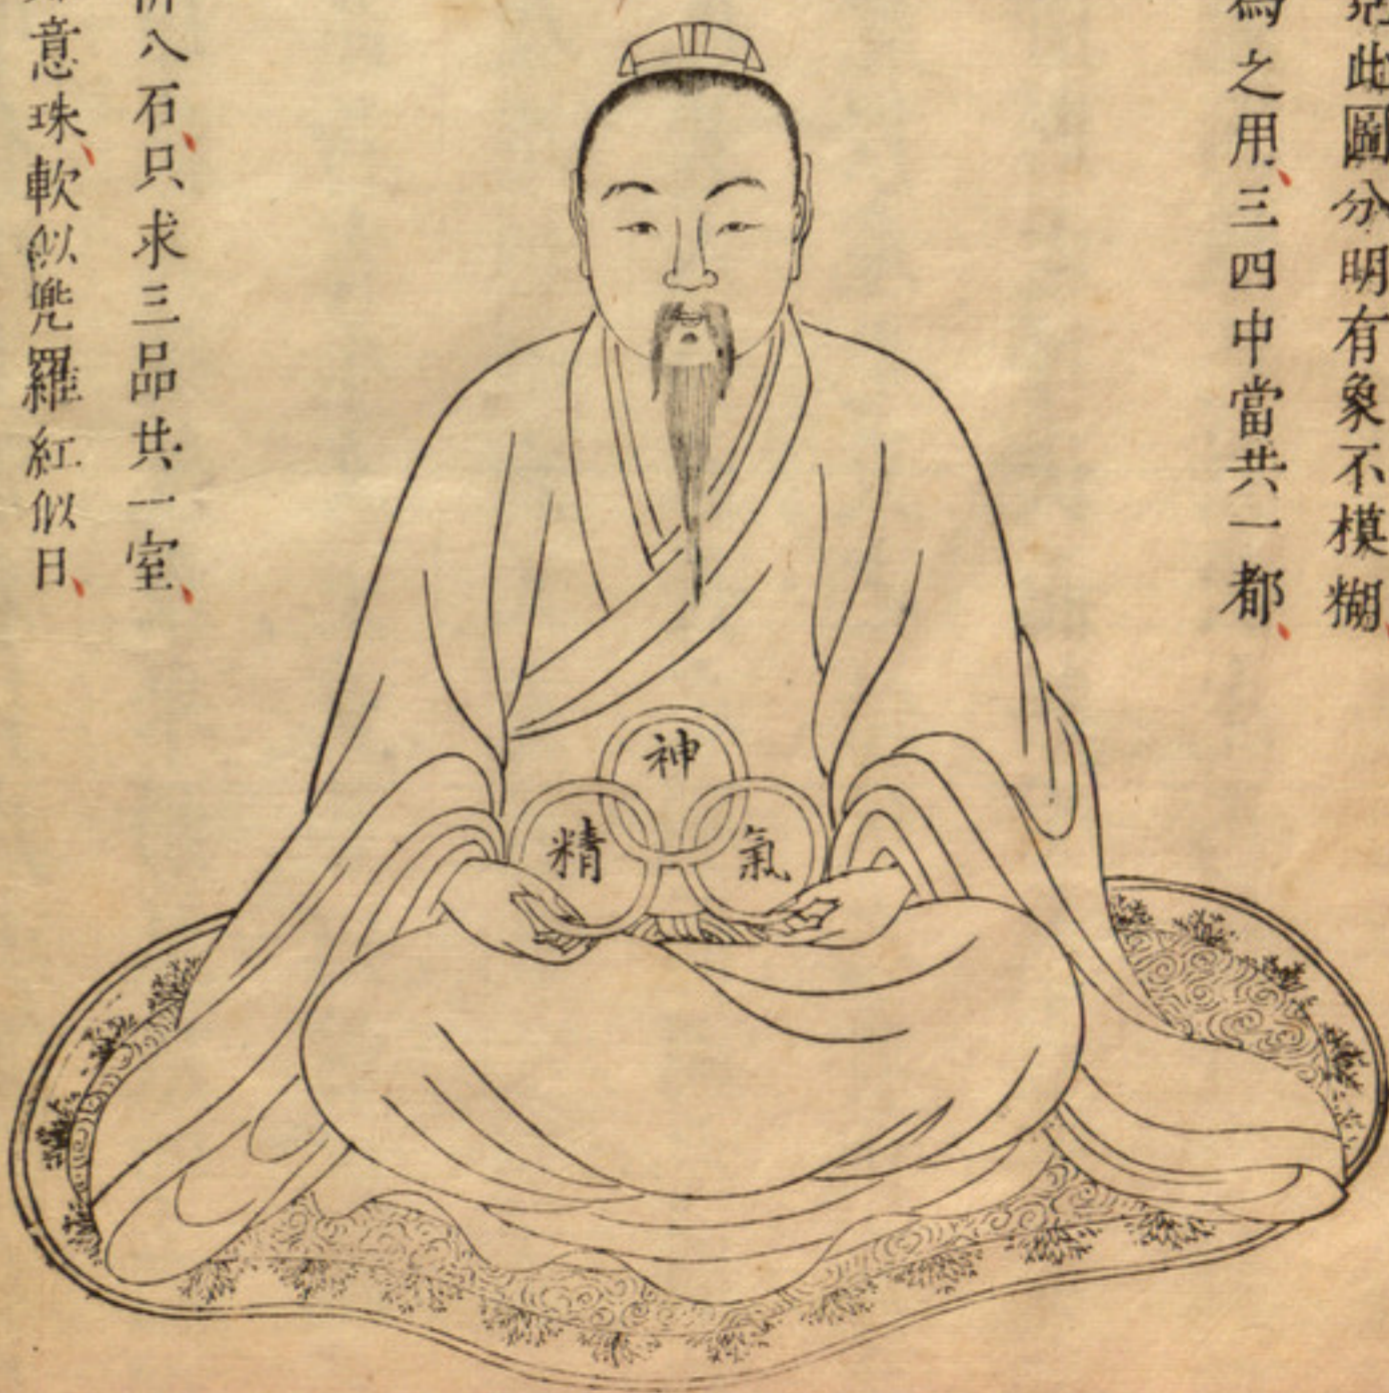 此圖分明有象不模糊、
為之用、三四中當共一都、
神
精
氣
八石、只求三品共一室、
意珠、軟似兜羅紅似日、